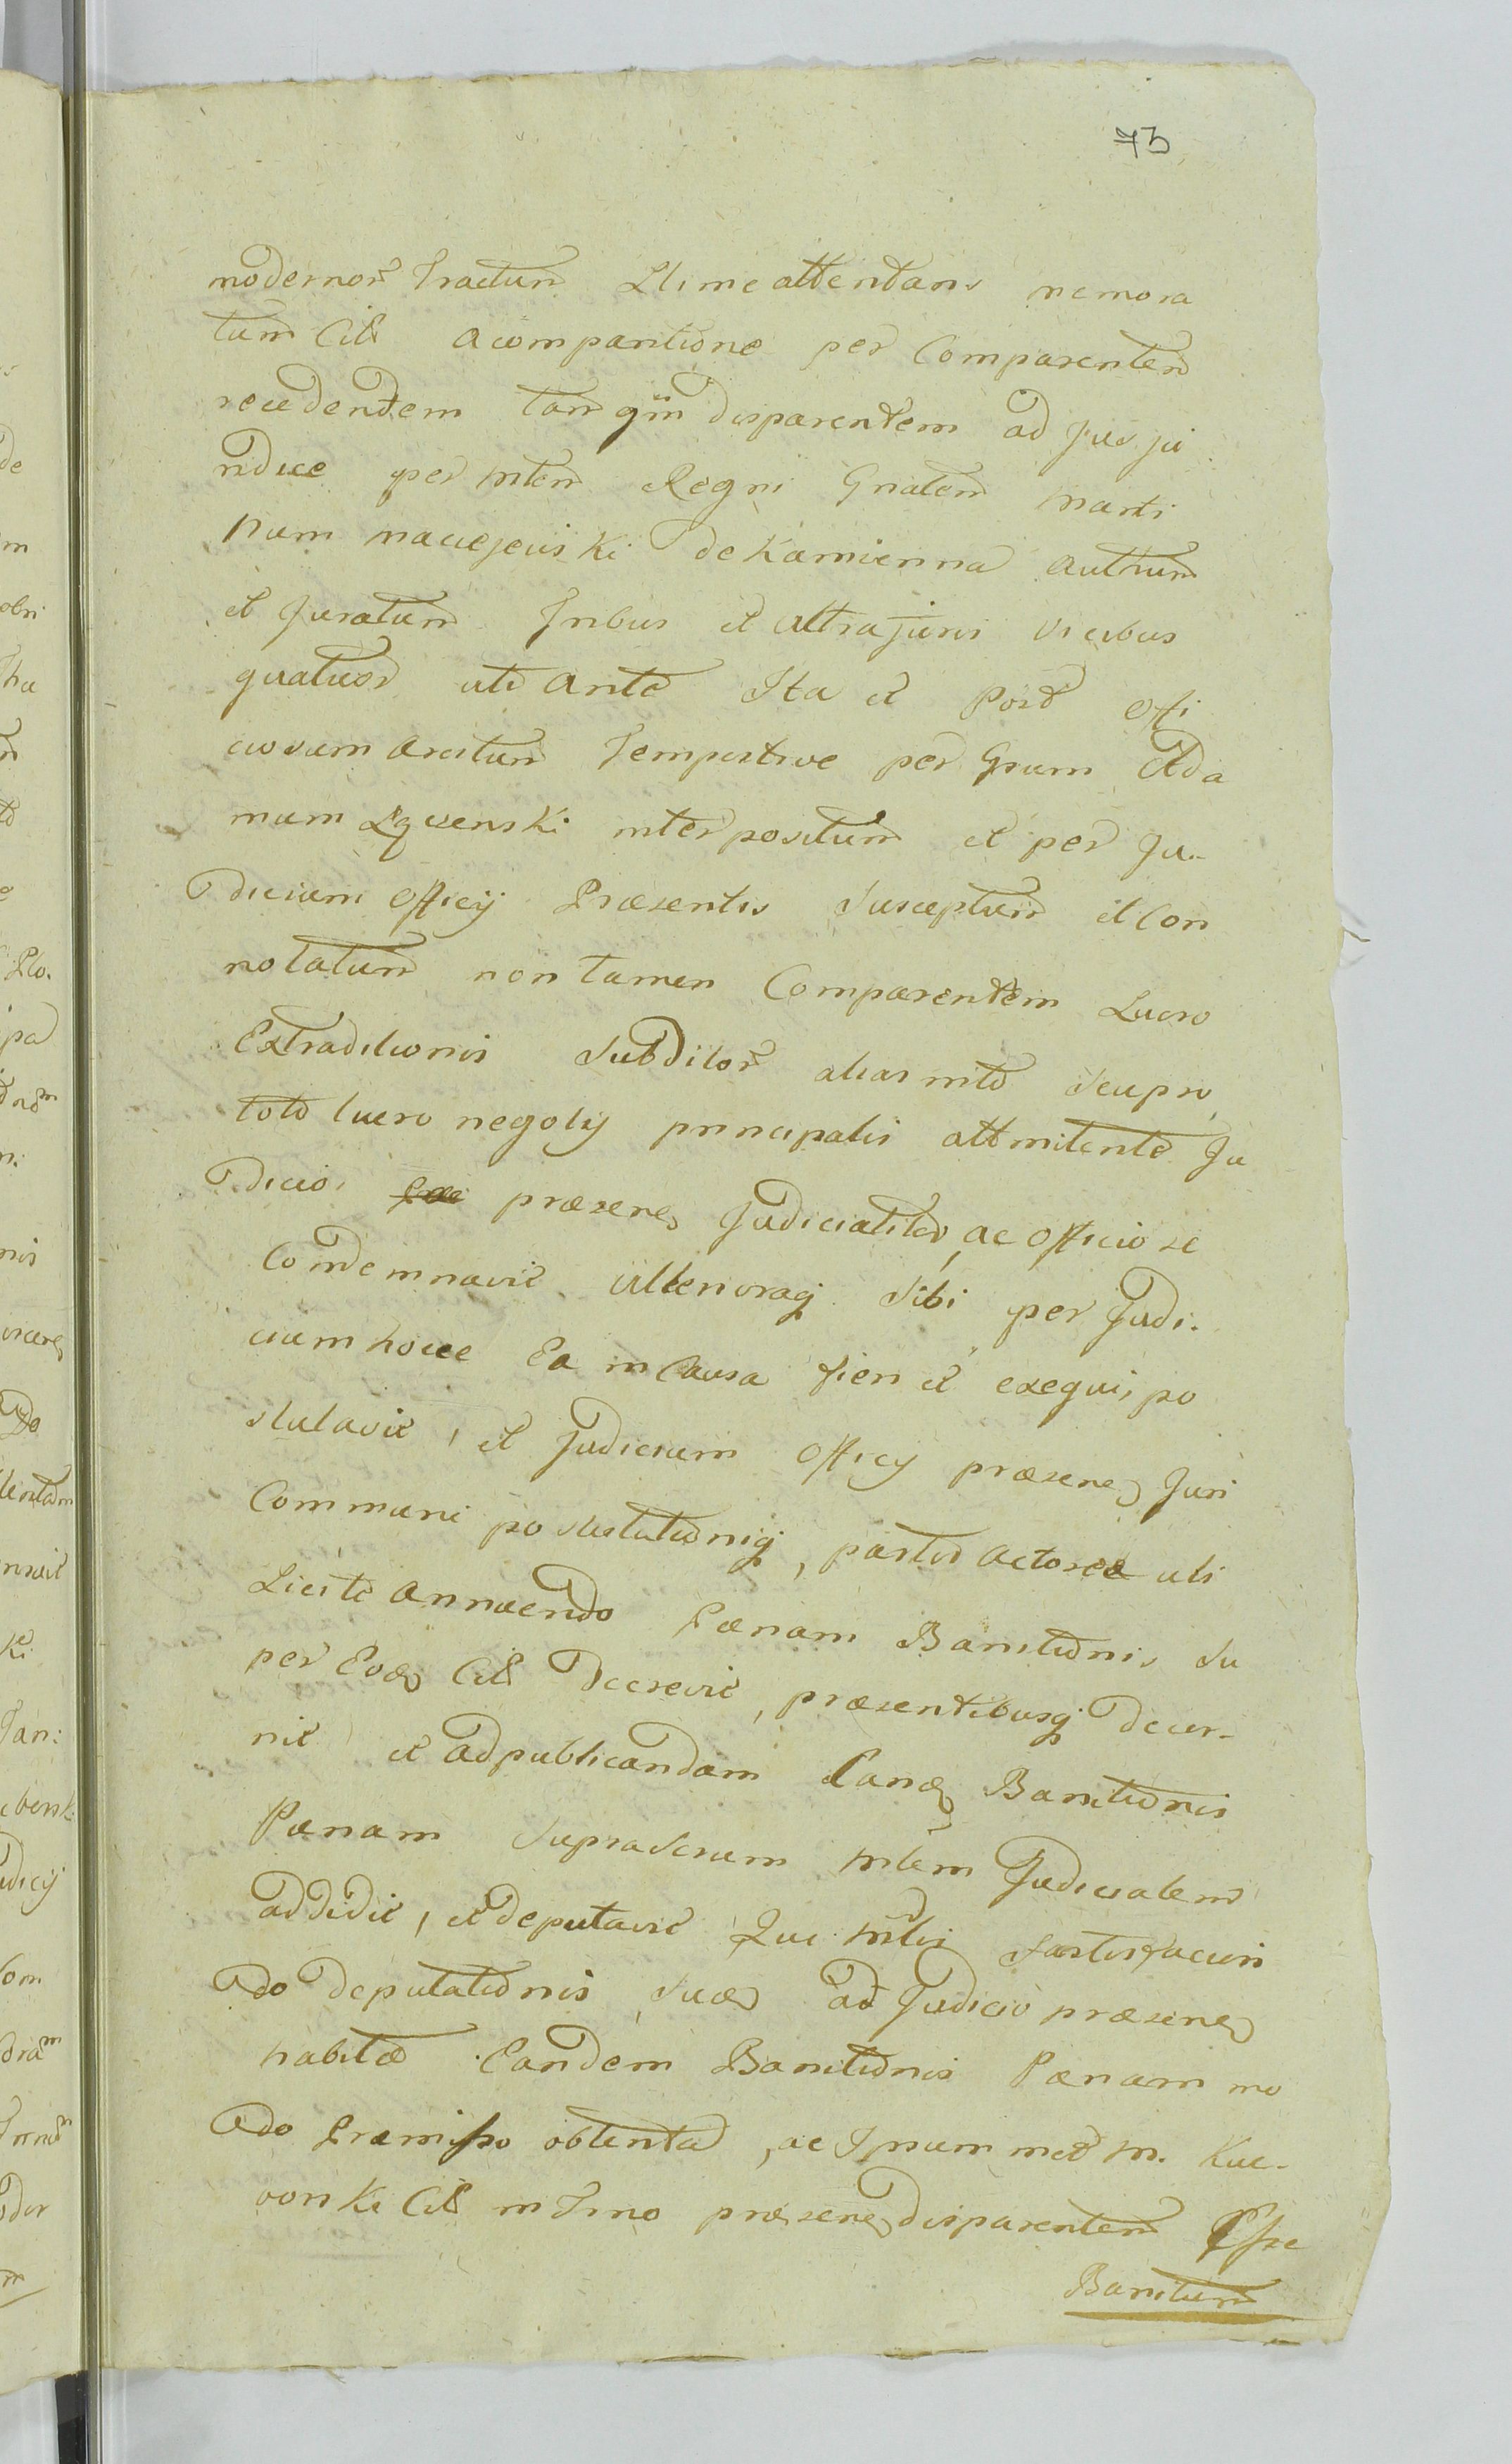 73
modernor Tractum Llime attentans memora
tum Citt acomparitione per Comparentem
recedendem tanqm disparentem ad Jus ju
ridice per Mlem Regni Gnalem Marti
num Maciejewski de Kamienna autum
et Juratum Tribus et ultra juris vicibus
quatuor uti ante Ita et Post Offi
ciosum Arestum Tempestive per Gsum Ada
mum interpositum et per Ju-
dicium Officij Præsentis Susceptum et Con
notatum non tamen Comparentem Lucro
Extraditionis Subditor alias mto seu pro
toto lucro negotij principalis attmitente Ju
dicio præsene Judicialiter ac Officiose
Condemnavit ulterioraq Sibi per Judi-
cium hocce Ea in Causa fieri et exequi, po
stulavit, et Judicium Officij præsene Juri
Communi postulationiq, partis Actoreæ uti
Licite annuendo Pænam Banitionis Su
per Eod Citt Decrevit, præsentibusq Decer-
nit et ad publicandam Eand Banitionis
Pænam Suprascrum Mlem Judicialem
addidit, et deputavit Qui Mlis Satisfacien
do Deputationis Suæ ad Judicio præsene
habitæ Eandem Banitionis Pænam mo
do Præmisso obtentam, ac Ipsummet M. Kuc-
Citt in Tmno præsene disparentem Esse
Banitum